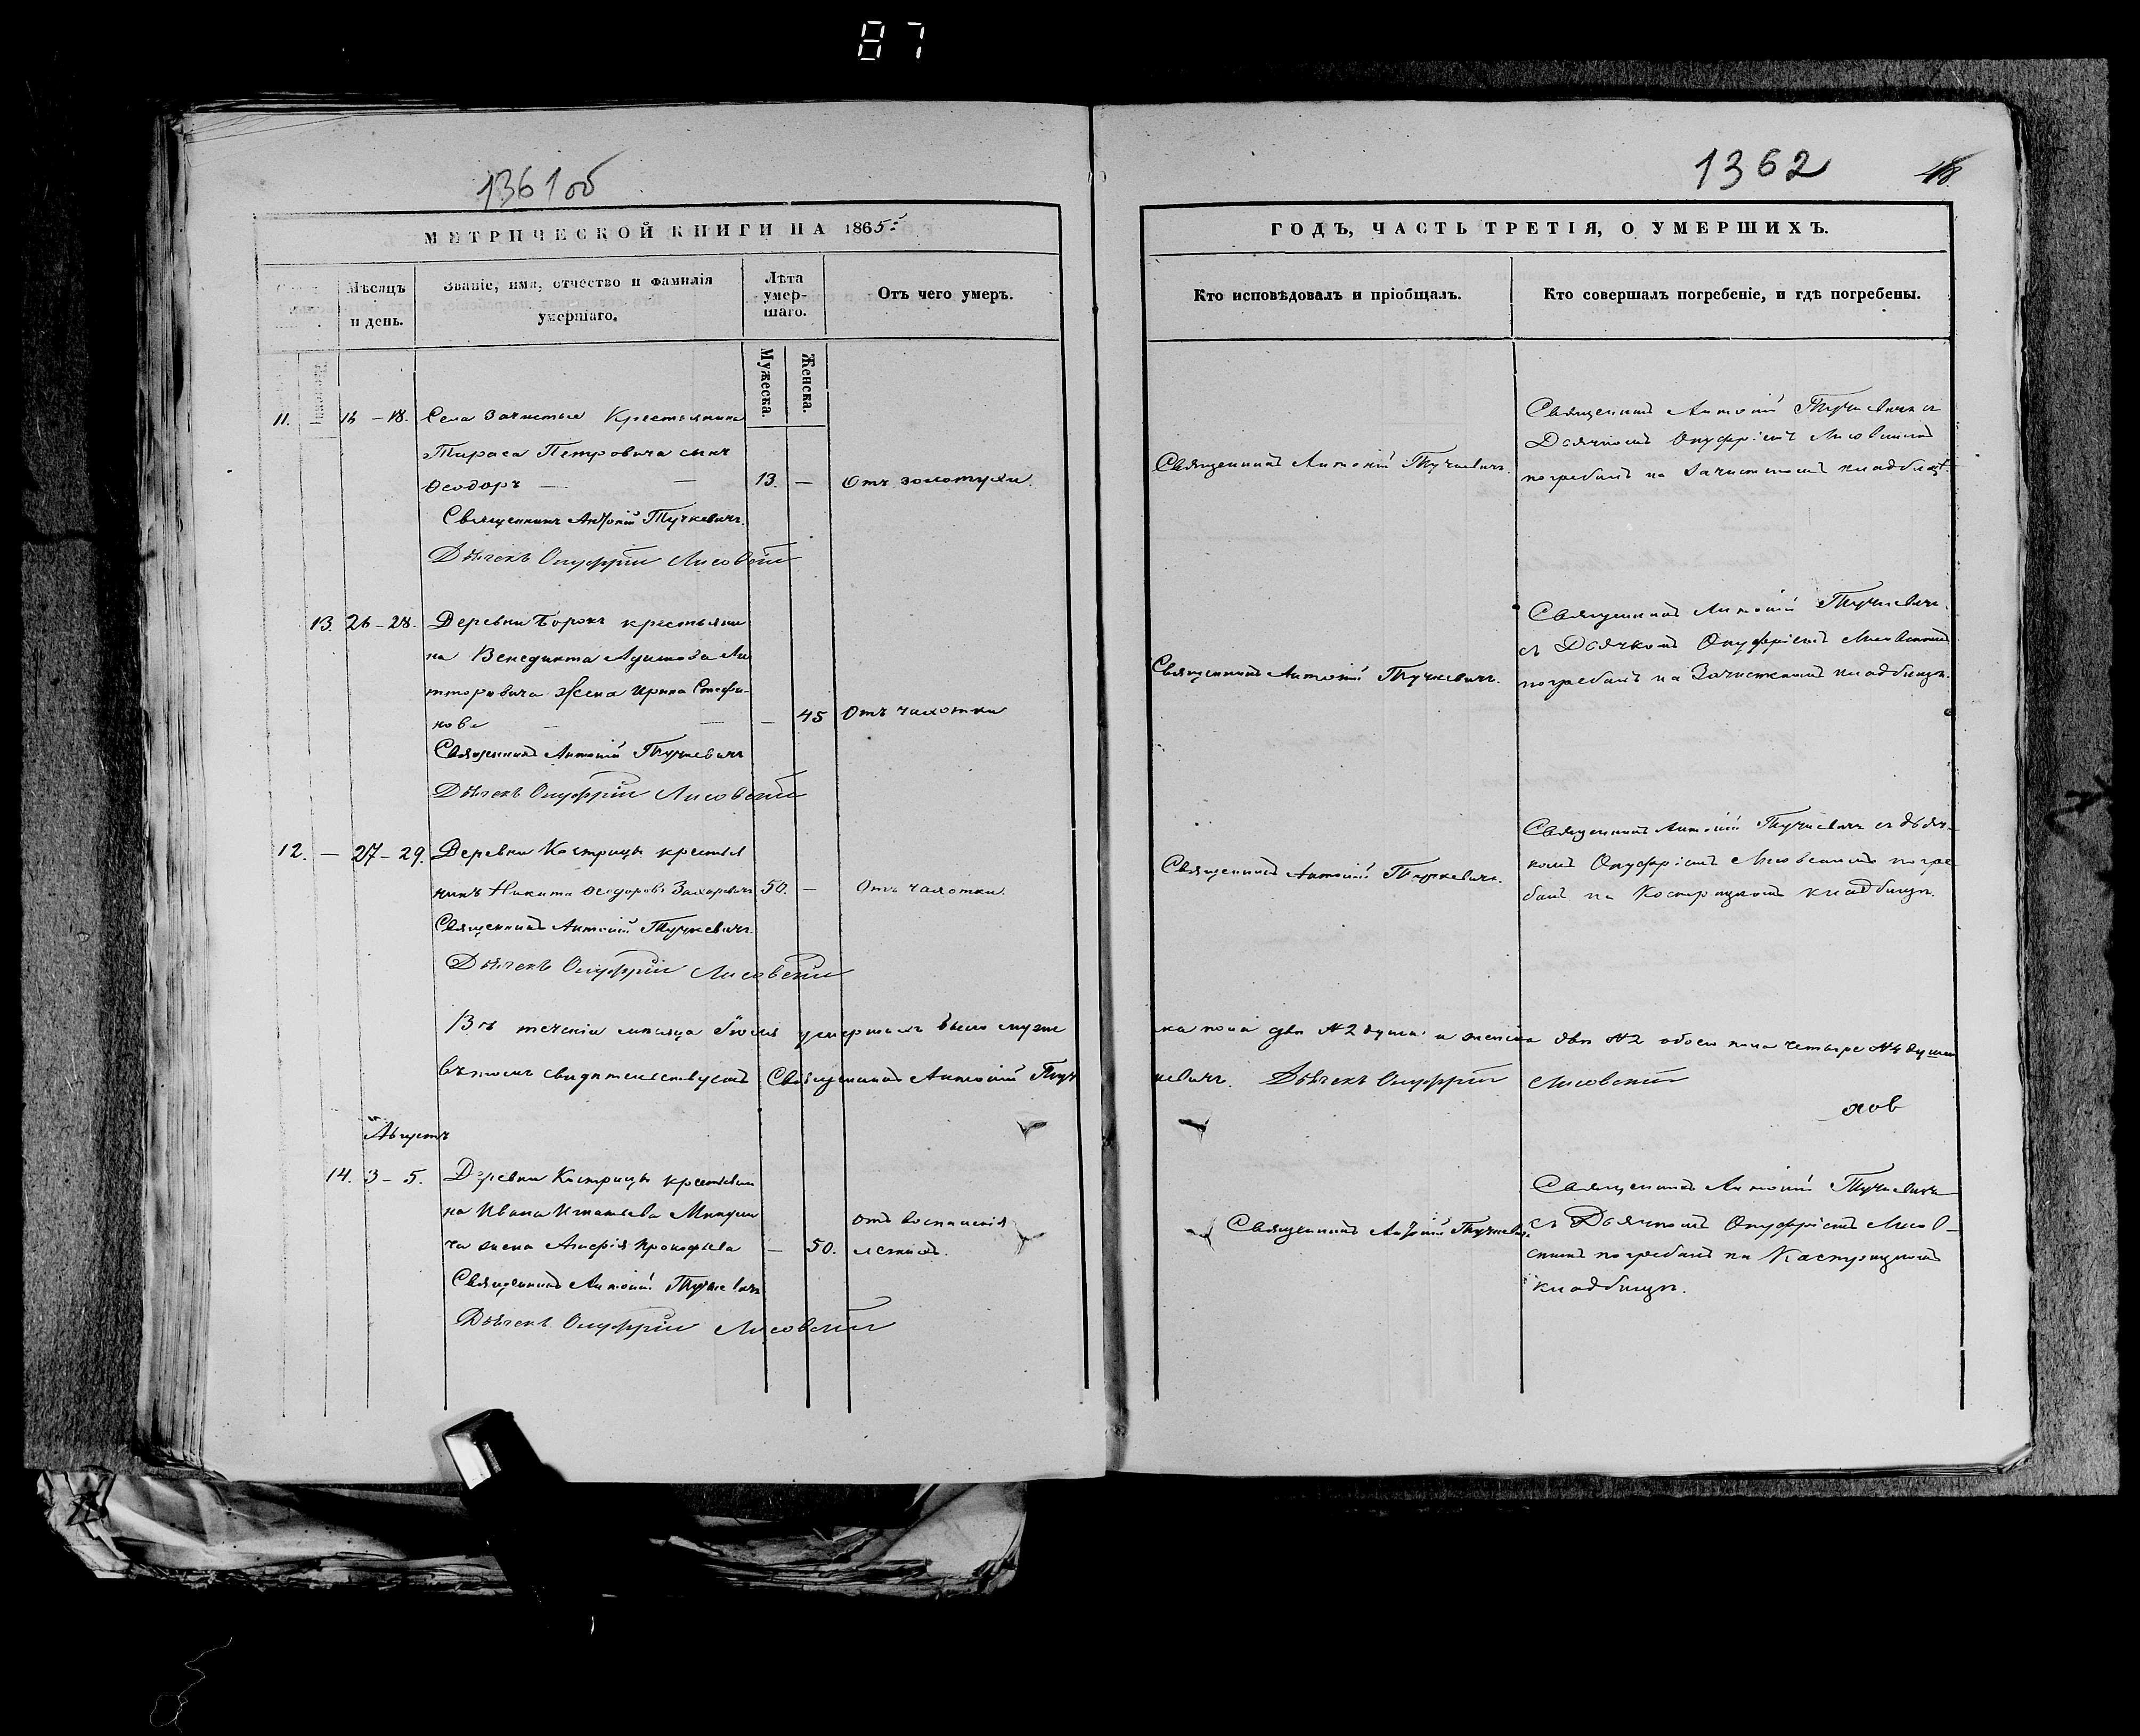 87
1361об
МЕТРИЧЕСКОЙ КНИГИ НА 1865й
Мѣсяцъ и день.
Званіе, имя, отчество и фамилія умершаго.
Лѣта умершаго.
Отъ чего умеръ.
Мужеска.
Женска.
11. 16 – 18. Села Зачистья Крестьянина
Тараса Петровича сынъ
Ѳеодоръ — — 13. — Отъ золотухи.
Священникъ Антоній Тучкевичъ.
Дьячекъ Онуфрій Лисовскій
13. 26 – 28. Деревни Борокъ крестьяни
на Венедикта Адамова Ли
жена Ирина Стефа-
нова — — — 45 Отъ чахотки
Священникъ Антоній Тучкевичъ
Дьячекъ Онуфрій Лисовскій
12. — 27 – 29. Деревни Кострицы крестья
нинъ Никита Ѳеодоровъ Захаревичъ 50. — Отъ чахотки.
Священникъ Антоній Тучкевичъ.
Дьячекъ Онуфрій Лисовскій
Въ теченіи мѣсяца Іюля умершихъ было муже
въ томъ свидѣтельствуетъ Священникъ Антоній Туч
Августъ
14. 3 – 5. Деревни Кострицы крестьяни
на Ивана Игнатьева
ча жена Агафія Прокофьева — 50. отъ воспаленія
легкихъ.
Священникъ Антоній Тучкевичъ
Дьячекъ Онуфрій Лисовскій
1362
48.
ГОДЪ, ЧАСТЬ ТРЕТІЯ, О УМЕРШИХЪ.
Кто исповѣдовалъ и пріобщалъ.
Кто совершалъ погребеніе, и гдѣ погребены.
Священникъ Антоній Тучкевичъ.
Священникъ Антоній Тучкевичъ съ
Дьячкомъ Онуфріемъ Лисовскимъ
погребалъ на Зачистскомъ кладбищѣ.
Священникъ Антоній Тучкевичъ.
Священникъ Антоній Тучкевичъ
съ Дьячкомъ Онуфріемъ Лисовскимъ
погребалъ на Зачистскомъ кладбищѣ.
Священникъ Антоній Тучкевичъ.
Священникъ Антоній Тучкевичъ съ дьяч-
комъ Онуфріемъ Лисовскимъ погре
балъ на Кострицкомъ кладбищѣ.
ска пола двѣ №2 души и женска двѣ №2 обоего пола четыре №4 души
кевичъ. Дьячекъ Онуфрій Лисовскій
Священникъ Антоній Тучкевичъ
Священникъ Антоній Тучкевичъ
съ Дьячкомъ Онуфріемъ Лисов-
скимъ погребалъ на Кострицкомъ
кладбищѣ.